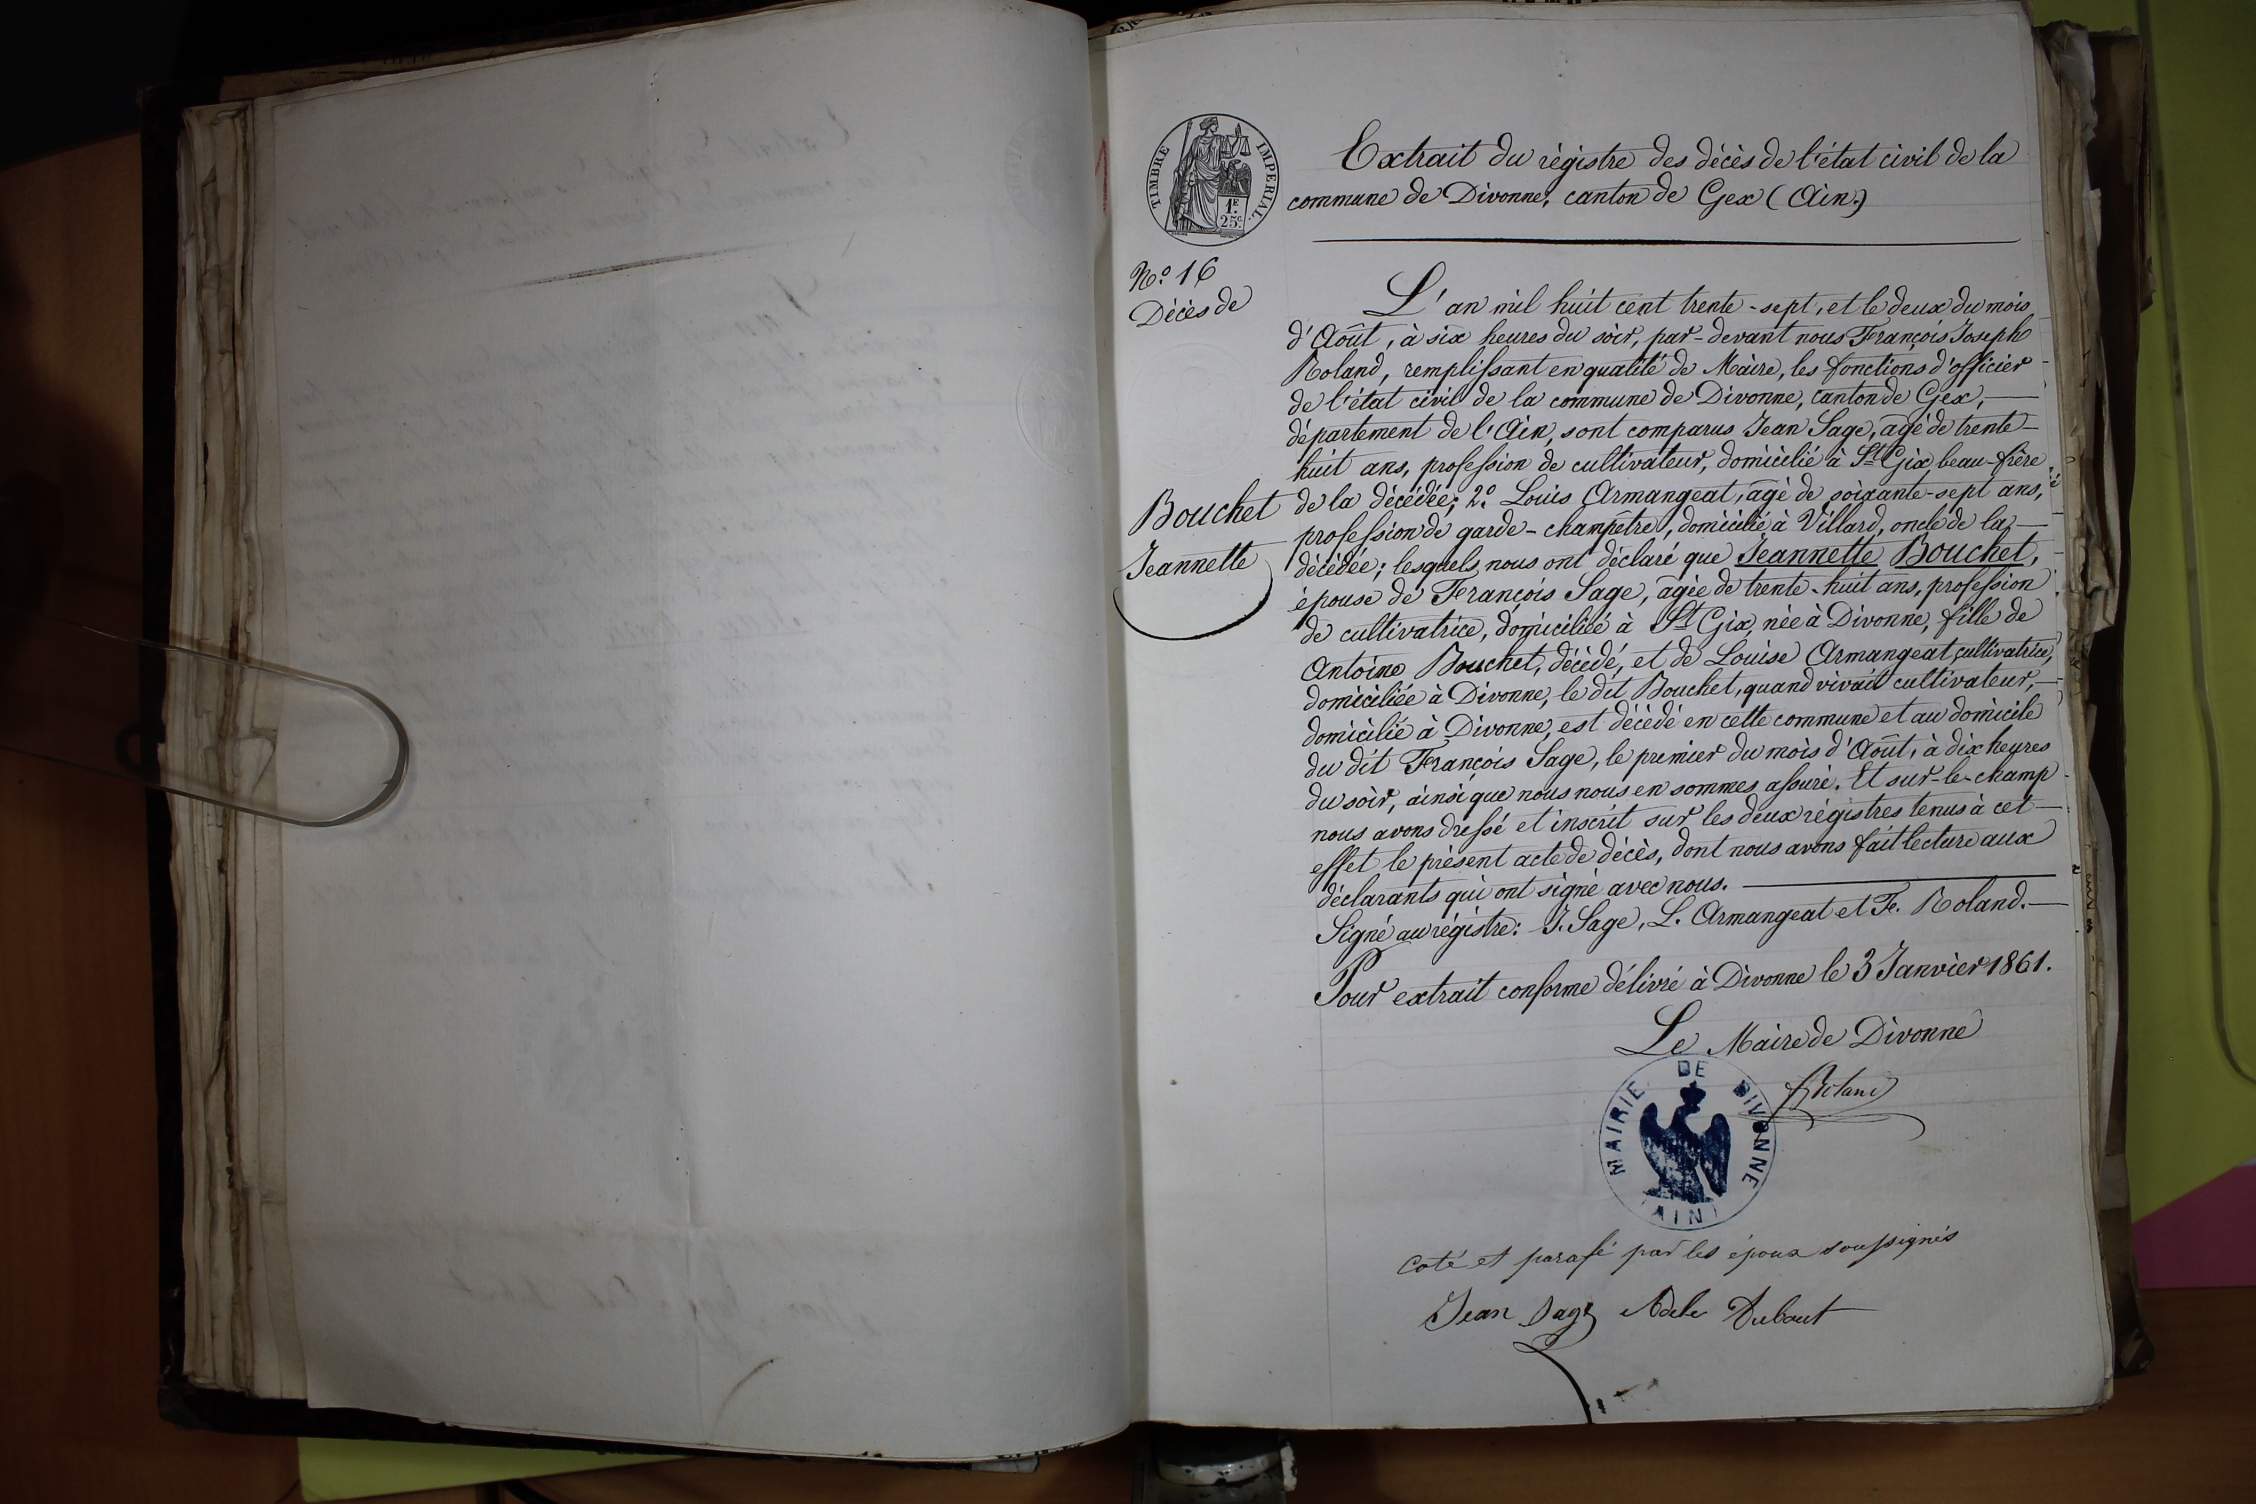 TIMBRE IMPERIAL
1F.
25c.
Extrait du règistre des décès de l'état civil de la
commune de Divonne, canton de Gex (Ain.)
No. 16
Décès de
L'an mil huit cent trente-sept, et le deux du mois
d'Août, à six heures du soir, par-devant nous François Joseph
Roland, remplissant en qualité de Maire, les fonctions d'officier
de l'état civil de la commune de Divonne, canton de Gex,
département de l'Ain, sont comparus Jean Sage, agé de trente-
huit ans, profession de cultivateur, domicilié à St Gix, beau-frère
de la décédée; 2.o Louis Armangeat, agé de soixante-sept ans,
profession de garde-champêtre, domicilié à Villard, oncle de la
décédée; lesquels nous ont déclaré que Jeannette Bouchet,
épouse de François Sage, agée de trente-huit ans, profession
de cultivatrice, domiciliée à St Gix, née à Divonne, fille de
Antoine Bouchet, décédé, et de Louise Armangeat, cultivatrice,
domiciliée à Divonne, le dit Bouchet, quand vivait cultivateur,
domicilié à Divonne, est décédé en cette commune et au domicile
du dit François Sage, le premier du mois d'Août, à dix heures
du soir, ainsi que nous nous en sommes assuré. Et sur-le-champ
nous avons dressé et inscrit sur les deux régistres tenus à cet
effet le présent acte de décès, dont nous avons fait lecture aux
déclarants qui ont signé avec nous.
Signé au régistre: J. Sage, L. Armangeat et F. Roland.
Bouchet
Jeannette
Pour extrait conforme délivré à Divonne le 3 Janvier 1861.
Le Maire de Divonne
Roland
MAIRIE DE DIVONNE
(AIN)
Coté et parafé par les époux soussignés
Jean Sage Adele Dubout